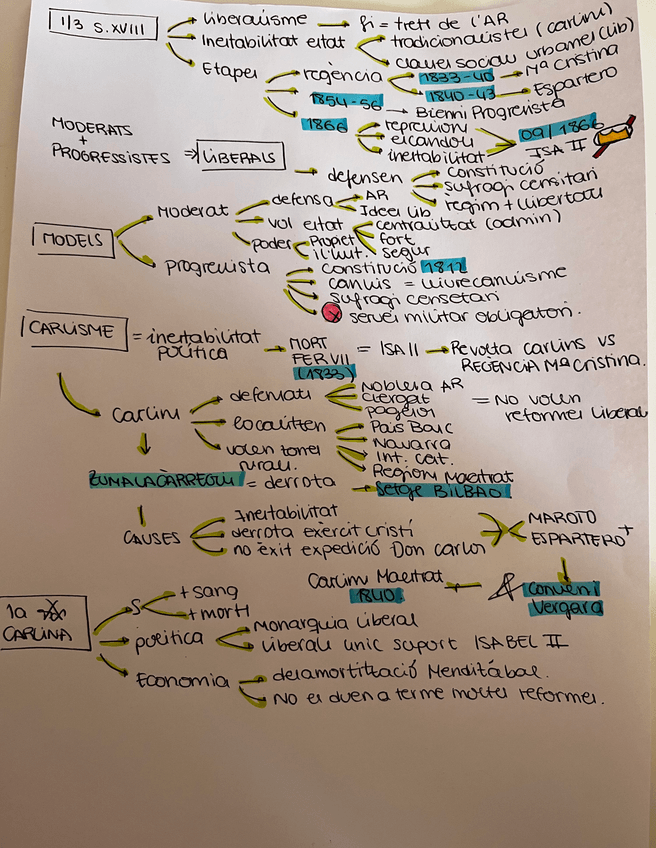 1/3 S.XVIII
liberalisme → fi = trets de l'AR
Inestabilitat estat
tradicionalistes (carlins)
classes socials urbanes (lib)
Etapes
regència
1833-40 → Mª Cristina
1840-43 → Espartero
1854-56 → Bienni Progressista
1866
repressions
escàndols
inestabilitat
09/1866
ISA II
MODERATS
+
PROGRESSISTES ⇒ LIBERALS
→ defensen
constitució
sufragi censitari
regim + llibertats
MODELS
Moderat
defensa
AR
Idees lib.
vol estat
centralitzat (admin)
fort
segur
poder
Propiet
il'lust.
Progressista
constitució 1812
canvis = lliurecanvisme
sufragi censetari
servei militar obligatori.
CARLISME = inestabilitat política → MORT FER VII (1833) = ISA II → Revolta carlins VS REGÈNCIA Mª Cristina.
Carlins
defensats
Noblesa AR
clergat
pagesos
= NO volen reformes liberals
localitzen
País Basc
Navarra
Int. cat.
Regions Maestrat
volen zones rurals.
ZUMALACÀRREGUI = derrota → Setge BILBAO
CAUSES
Inestabilitat
derrota exèrcit cristí
no èxit expedició Don Carlos
MAROTO
ESPARTERO
Conveni Vergara
Carlins Maestrat
1840
1a
CARLINA
S
+ sang
+ morts
política
Monarquia liberal
liberals unic suport ISABEL II
Economia
desamortització Menditábal.
No es duen a terme moltes reformes.